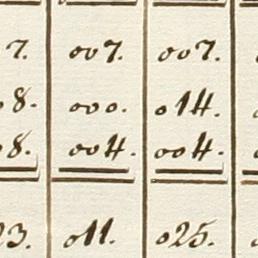 7. 007. 007.
8. 000. 014.
08. 004. 004.
23. 011. 025.